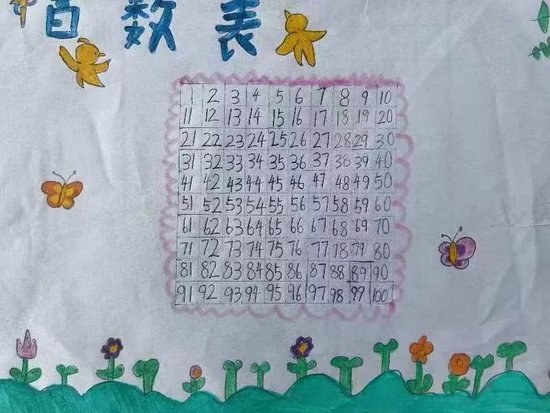 百数表
1 2 3 4 5 6 7 8 9 10
11 12 13 14 15 16 17 18 19 20
21 22 23 24 25 26 27 28 29 30
31 32 33 34 35 36 37 38 39 40
41 42 43 44 45 46 47 48 49 50
51 52 53 54 55 56 57 58 59 60
61 62 63 64 65 66 67 68 69 70
71 72 73 74 75 76 77 78 79 80
81 82 83 84 85 86 87 88 89 90
91 92 93 94 95 96 97 98 99 100